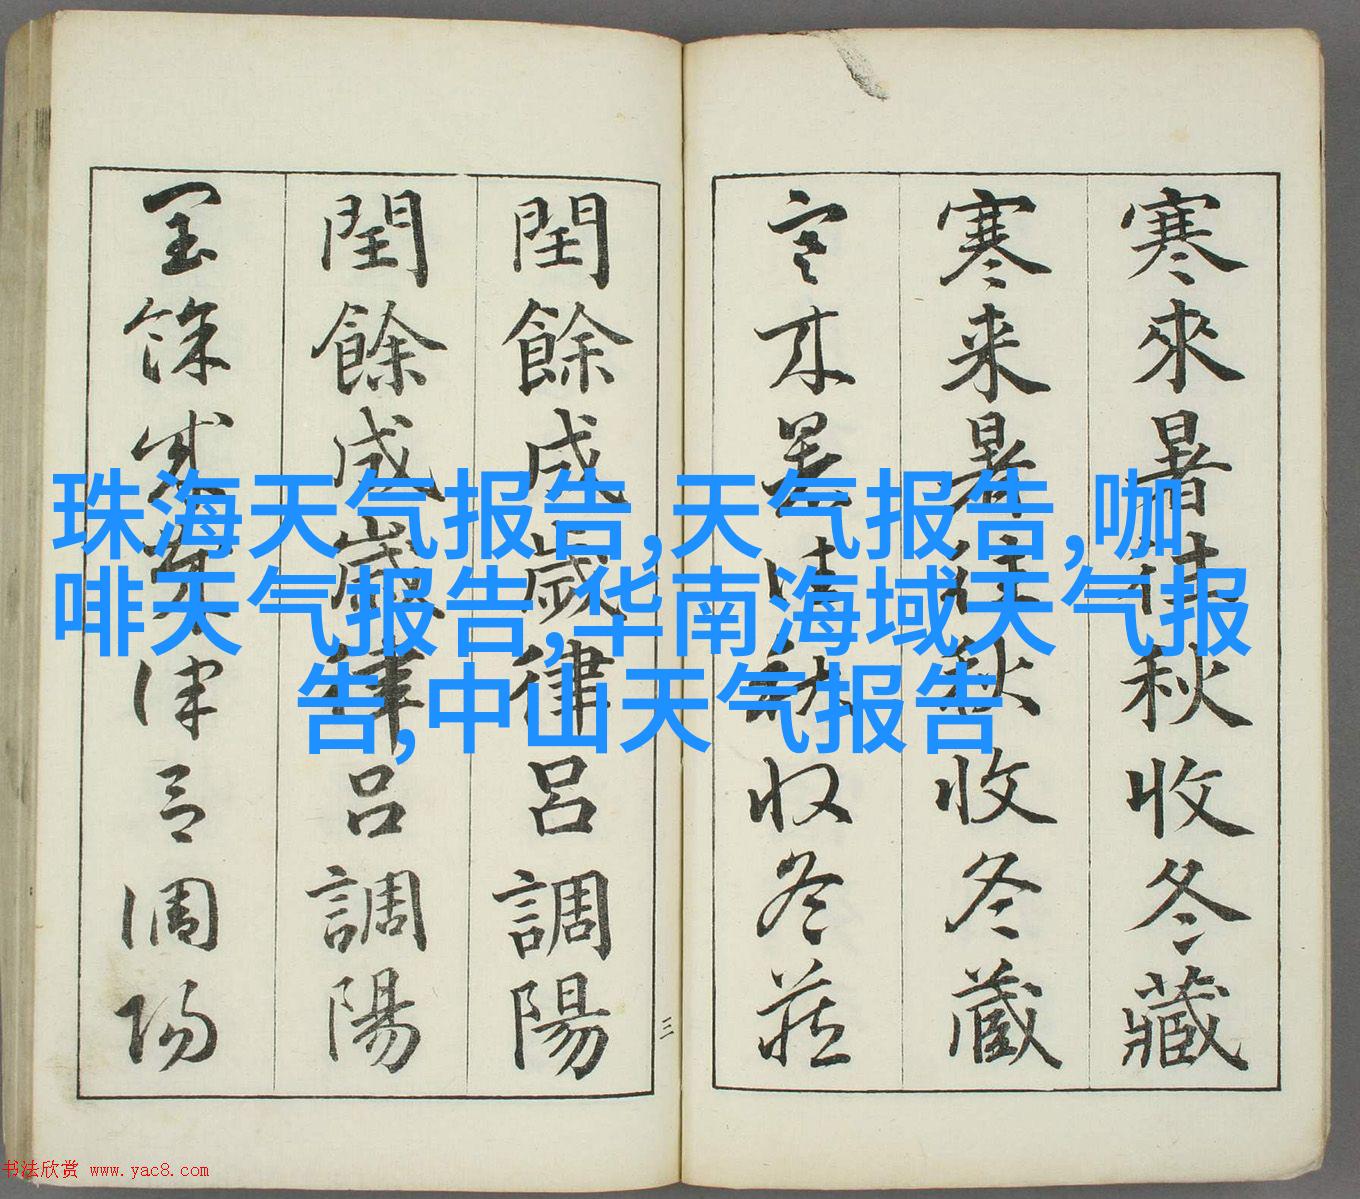 寒來暑往秋收冬藏
寒来暑往秋收冬蔵
寒来暑往秋收冬藏
閏餘成歲律呂調陽
閏餘成歲律呂調陽
閏餘成歲律呂調陽
三
珠海天气报告,天气报告,咖
啡天气报告,华南海域天气报
告,中山天气报告
书法欣赏 www.yac8.com